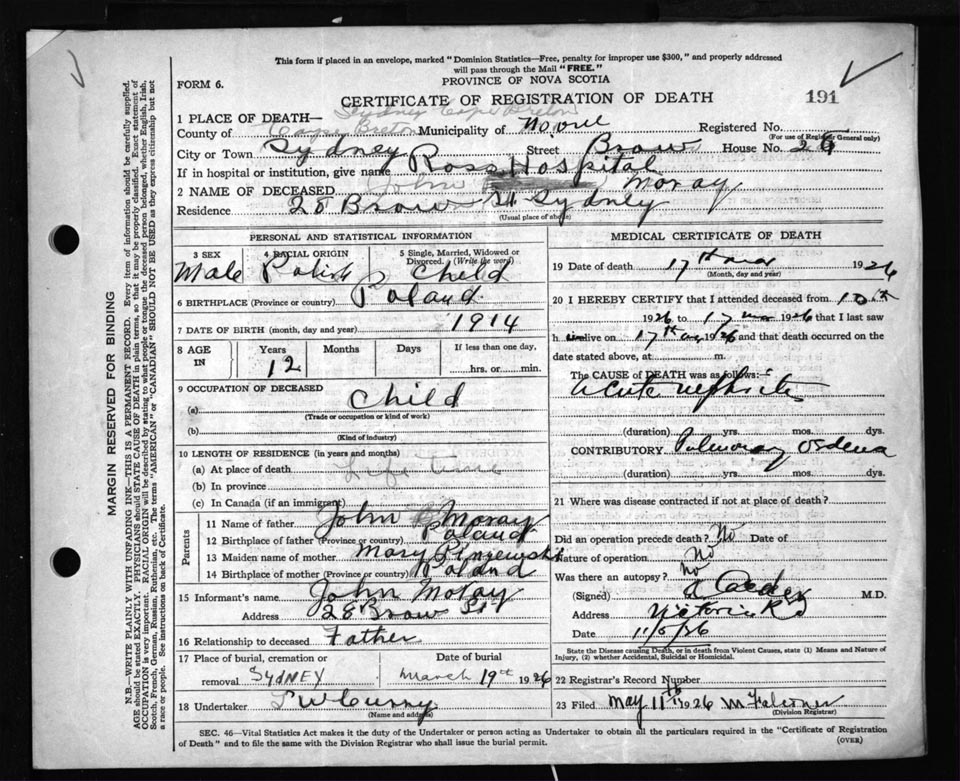 This form if placed in an envelope, marked "Dominion Statistics—Free, penalty for improper use $300," and properly addressed
will pass through the Mail "FREE."
FORM 6.
PROVINCE OF NOVA SCOTIA
CERTIFICATE OF REGISTRATION OF DEATH
191
Sydney Cape Breton
1 PLACE OF DEATH—
County of Cape Breton Municipality of Registered No.
(For use of Registrar General only)
City or Town Sydney Street Brow House No. 28
If in hospital or institution, give name Ross Hospital
2 NAME OF DECEASED John Moray
Residence 28 Brow St Sydney
(Usual place of abode)
PERSONAL AND STATISTICAL INFORMATION
3 SEX
Male
4 RACIAL ORIGIN
Polish
5 Single, Married, Widowed or
Divorced. (Write the word)
Child
6 BIRTHPLACE (Province or country) Poland
7 DATE OF BIRTH (month, day and year) 1914
8 AGE
IN
Years Months Days If less than one day,
12 hrs. or min.
9 OCCUPATION OF DECEASED
(a) Child
(Trade or occupation or kind of work)
(b)
(Kind of industry)
10 LENGTH OF RESIDENCE (in years and months)
(a) At place of death Life time
(b) In province
(c) In Canada (if an immigrant)
Parents
11 Name of father John Moray
12 Birthplace of father (Province or country) Poland
13 Maiden name of mother Mary
14 Birthplace of mother (Province or country) Poland
15 Informant's name John Moray
Address 28 Brow St
16 Relationship to deceased Father
17 Place of burial, cremation or Date of burial
removal SYDNEY March 19th 1926
18 Undertaker
(Name and address)
MEDICAL CERTIFICATE OF DEATH
19 Date of death 17th Mar 1926
(Month, day and year)
20 I HEREBY CERTIFY that I attended deceased from
1926 to 17 Mar 1926 that I last saw
h alive on 17th 1926 and that death occurred on the
date stated above, at m.
The CAUSE of DEATH was as follows:—
Acute nephritis
(duration) yrs. mos. dys.
CONTRIBUTORY Pulmonary Oedema
(duration) yrs. mos. dys.
21 Where was disease contracted if not at place of death?
Did an operation precede death? No Date of
Nature of operation. No
Was there an autopsy? No
(Signed) M.D.
Address Victoria Rd
Date 11/5/26
State the Disease causing Death, or in death from Violent Causes, state (1) Means and Nature of
Injury, (2) whether Accidental, Suicidal or Homicidal.
22 Registrar's Record Number
23 Filed May 11th 1926
(Division Registrar)
SEC. 46—Vital Statistics Act makes it the duty of the Undertaker or person acting as Undertaker to obtain all the particulars required in the "Certificate of Registration
of Death" and to file the same with the Division Registrar who shall issue the burial permit. (OVER)
MARGIN RESERVED FOR BINDING
N.B.—WRITE PLAINLY WITH UNFADING INK—THIS IS A PERMANENT RECORD. Every item of information should be carefully supplied.
AGE should be stated EXACTLY. PHYSICIANS should STATE CAUSE OF DEATH in plain terms, so that it may be properly classified. Exact statement of
OCCUPATION is very important. RACIAL ORIGIN will be described by stating to what people or tongue the deceased person belonged, whether English, Irish,
Scotch, French, German, Russian, Ruthenian, etc. The terms "AMERICAN" or "CANADIAN" SHOULD NOT BE USED as they express citizenship but not
a race or people. See instructions on back of Certificate.